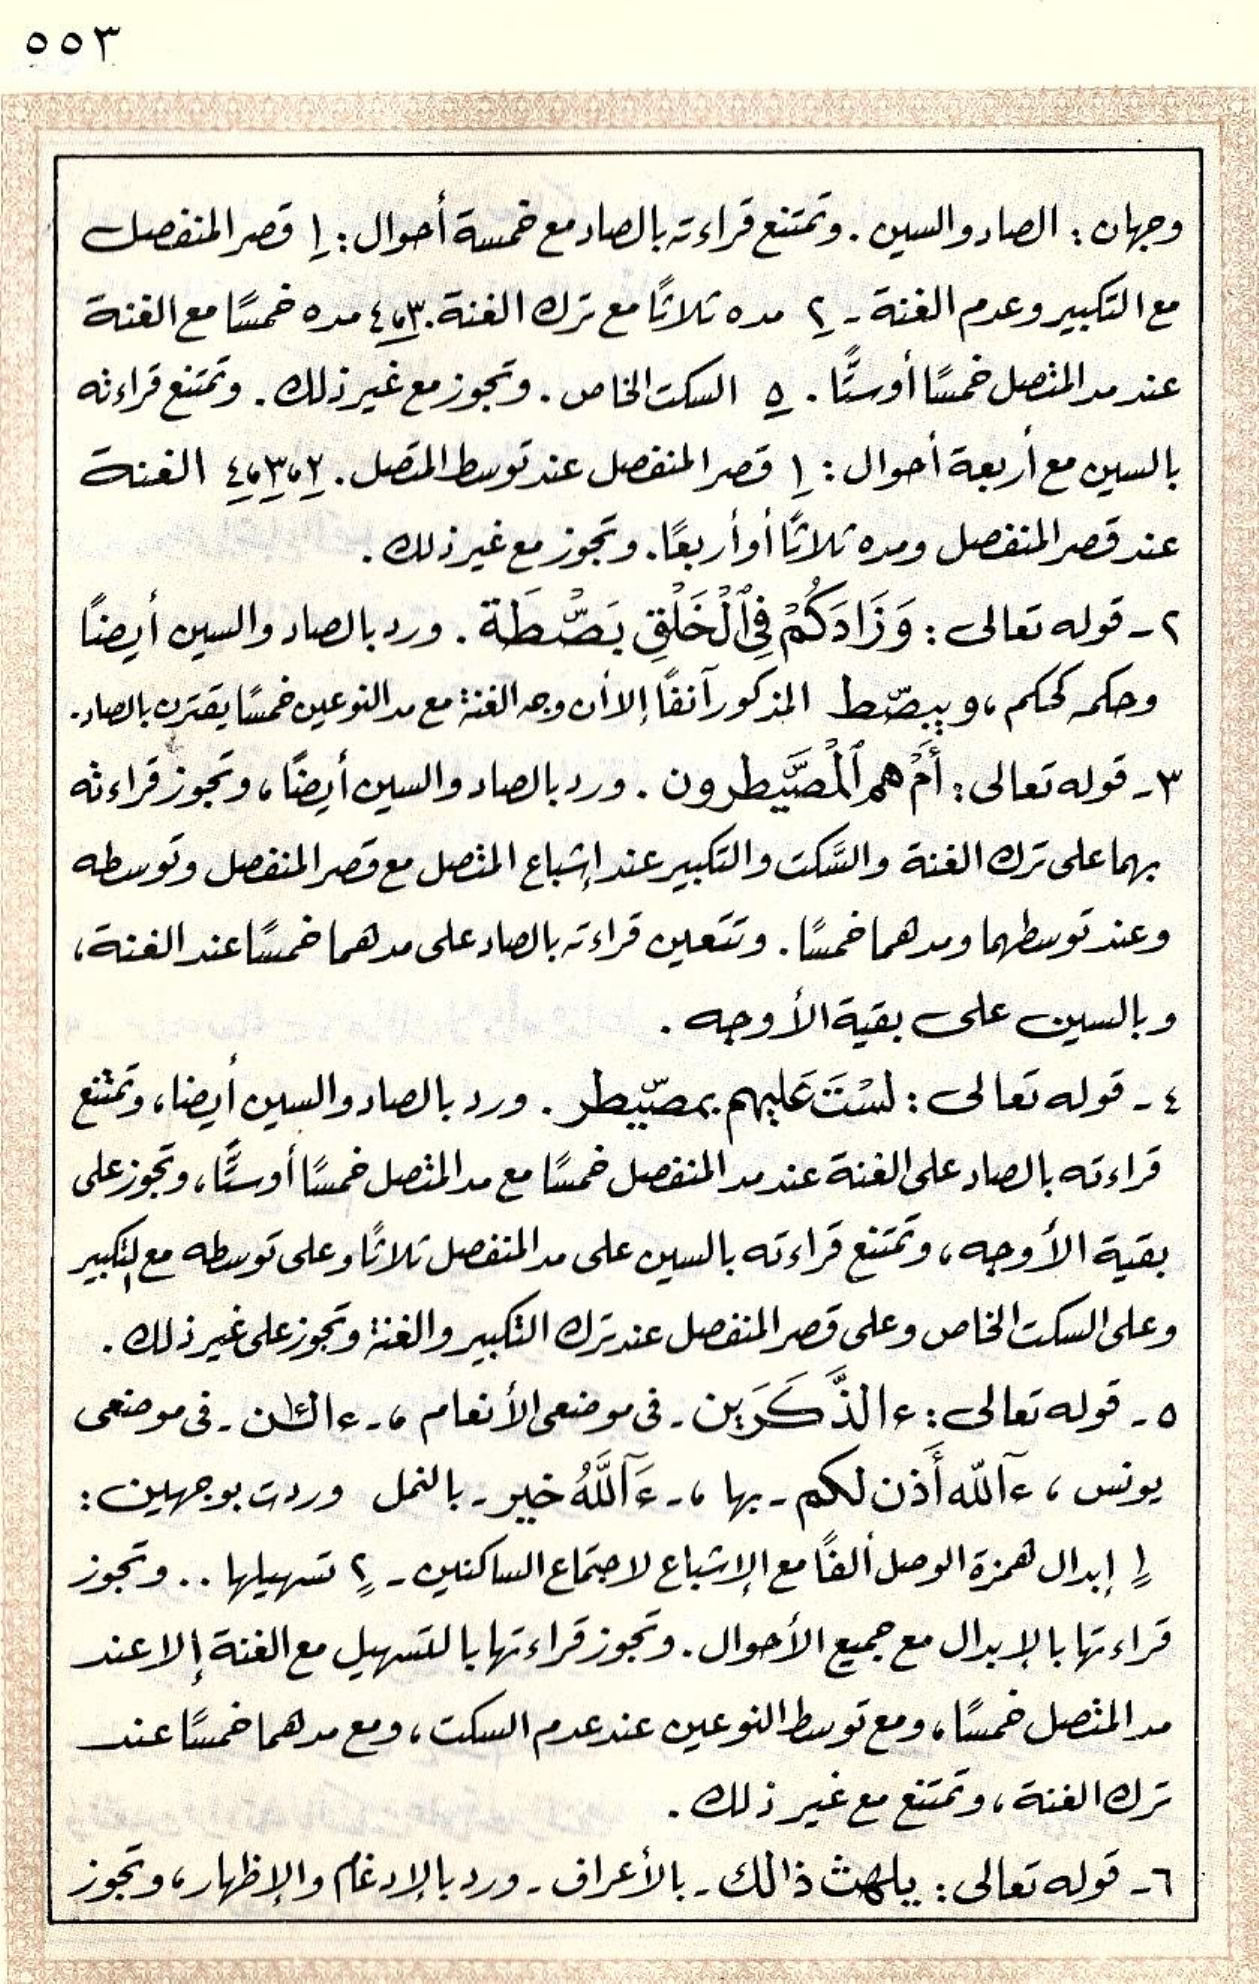 ٥٥٣
وجهان: الصاد والسين. وتمتنع قراءته بالصاد مع خمسة أحوال: ١ قصر المنفصل
مع التكبير وعدم الغنة - ٢ مده ثلاثًا مع ترك الغنة. ٣، ٤ مده خمسًا مع الغنة
عند مد المتصل خمسًا أو ستًّا. ٥ السكت الخاص. وتجوز مع غير ذلك. وتمتنع قراءته
بالسين مع أربعة أحوال: ١ قصر المنفصل عند توسط المتصل. ٢، ٣، ٤ الغنة
عند قصر المنفصل ومده ثلاثًا أو أربعًا. وتجوز مع غير ذلك.
٢- قوله تعالى: وَزَادَكُمْ فِي ٱلْخَلْقِ بَصْۜطَة. ورد بالصاد والسين أيضًا
وحكمه كحكم، ويبصّط المذكور آنفًا إلا أن وجه الغنة مع مد النوعين خمسًا يقترن بالصاد.
٣- قوله تعالى: أَمْ هم ٱلْمُصَيْطرون. ورد بالصاد والسين أيضًا، وتجوز قراءته
بهما على ترك الغنة والسَّكت والتكبير عند إشباع المتصل مع قصر المنفصل وتوسطه
وعند توسطهما ومدهما خمسًا. وتتعين قراءته بالصاد على مدهما خمسًا عند الغنة،
وبالسين على بقية الأوجه.
٤- قوله تعالى: لسْتَ عَليهم بمصيطر. ورد بالصاد والسين أيضا، وتمتنع
قراءته بالصاد على الغنة عند مد المنفصل خمسًا مع مد المتصل خمسًا أو ستًّا، وتجوز على
بقية الأوجه، وتمتنع قراءته بالسين على مد المنفصل ثلاثًا وعلى توسطه مع التكبير
وعلى السكت الخاص وعلى قصر المنفصل عند ترك التكبير والغنة وتجوز على غير ذلك.
٥- قوله تعالى: ءالذَّكَرَين - فى موضعى الأنعام، - ءالـٰٔن - فى موضعى
يونس، ءآللّه أَذن لكم - بها، - ءَآللَّهُ خير - بالنمل وردت بوجهين:
١ إبدال همزة الوصل ألفًا مع الإشباع لاجتماع الساكنين - ٢ تسهيلها .. وتجوز
قراءتها بالإبدال مع جميع الأحوال. وتجوز قراءتها بالتسهيل مع الغنة إلا عند
مد المتصل خمسًا، ومع توسط النوعين عند عدم السكت، ومع مدهما خمسًا عند
ترك الغنة، وتمتنع مع غير ذلك.
٦- قوله تعالى: يلهث ذالك - بالأعراف - ورد بالإدغام والإظهار، وتجوز